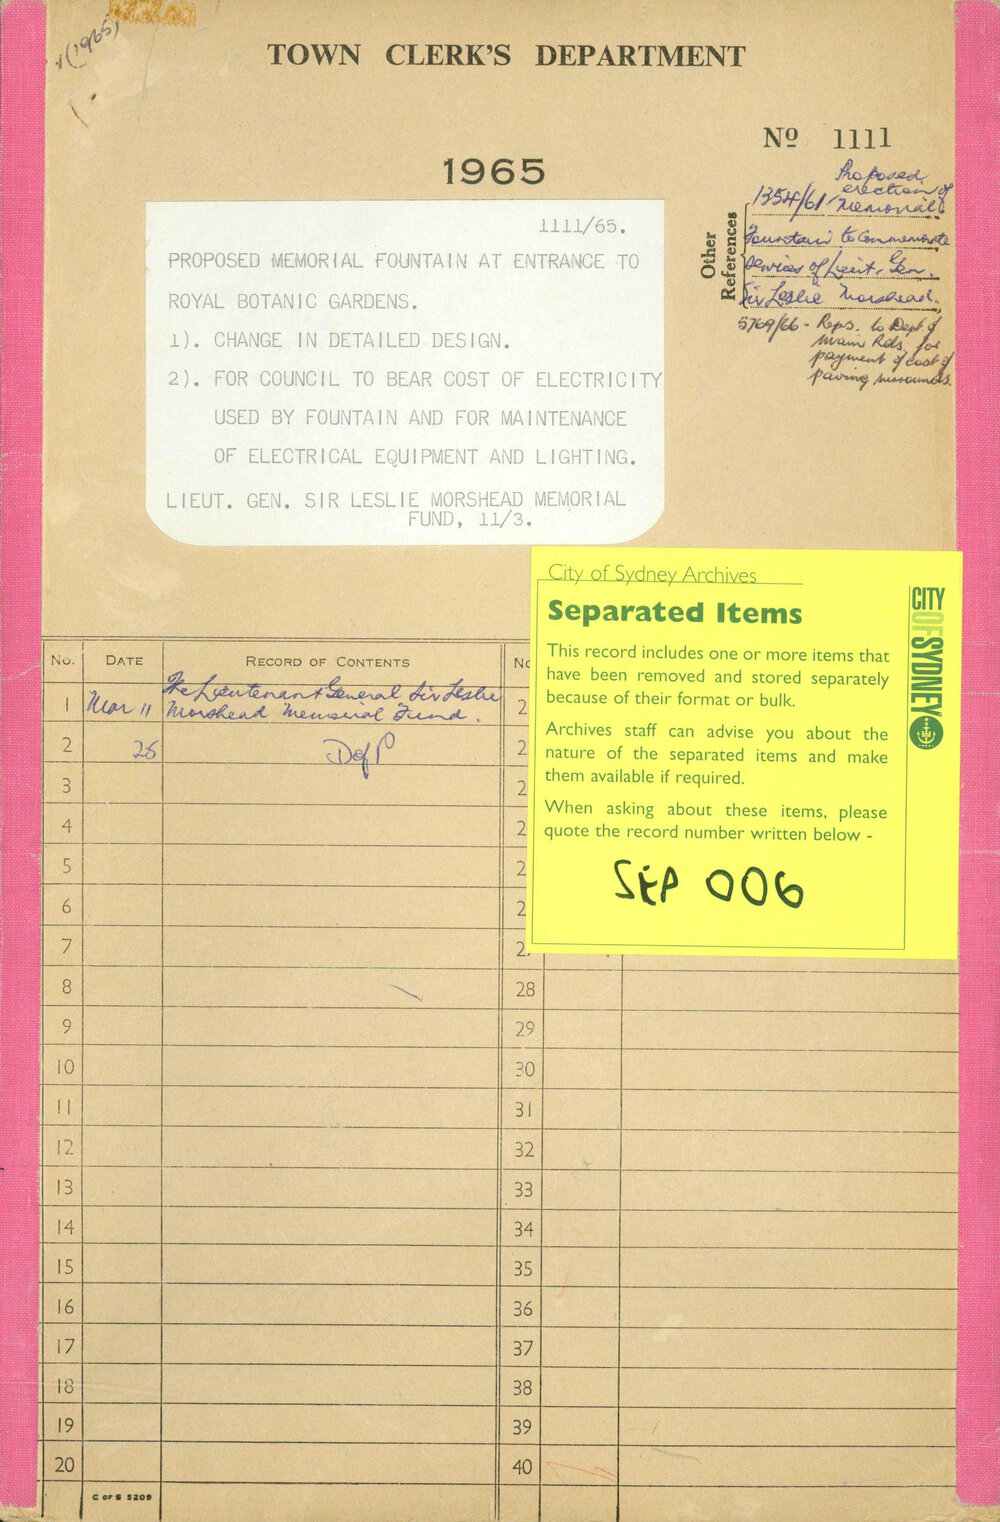 (1965)
TOWN CLERK'S DEPARTMENT
Nº 1111
1965
Other References
1354/61 Proposed
erection of
Memorial
Fountain to Commemorate
services of Lieut. Gen.
Sir Leslie Morshead.
5769/66 - Reps. to Dept of
Main Rds. for
payment of cost of
paving surrounds.
1111/65.
PROPOSED MEMORIAL FOUNTAIN AT ENTRANCE TO
ROYAL BOTANIC GARDENS.
1). CHANGE IN DETAILED DESIGN.
2). FOR COUNCIL TO BEAR COST OF ELECTRICITY
USED BY FOUNTAIN AND FOR MAINTENANCE
OF ELECTRICAL EQUIPMENT AND LIGHTING.
LIEUT. GEN. SIR LESLIE MORSHEAD MEMORIAL
FUND, 11/3.
City of Sydney Archives
Separated Items
This record includes one or more items that
have been removed and stored separately
because of their format or bulk.
Archives staff can advise you about the
nature of the separated items and make
them available if required.
When asking about these items, please
quote the record number written below -
SEP 006
CITY OF SYDNEY
No. DATE RECORD OF CONTENTS No
1 Mar 11 The Lieutenant General Sir Leslie
Morshead Memorial Fund. 2
2 25 D of P 2
3 2
4 2
5 2
6 2
7 2
8 28
9 29
10 30
11 31
12 32
13 33
14 34
15 35
16 36
17 37
18 38
19 39
20 40
C OF S 5209